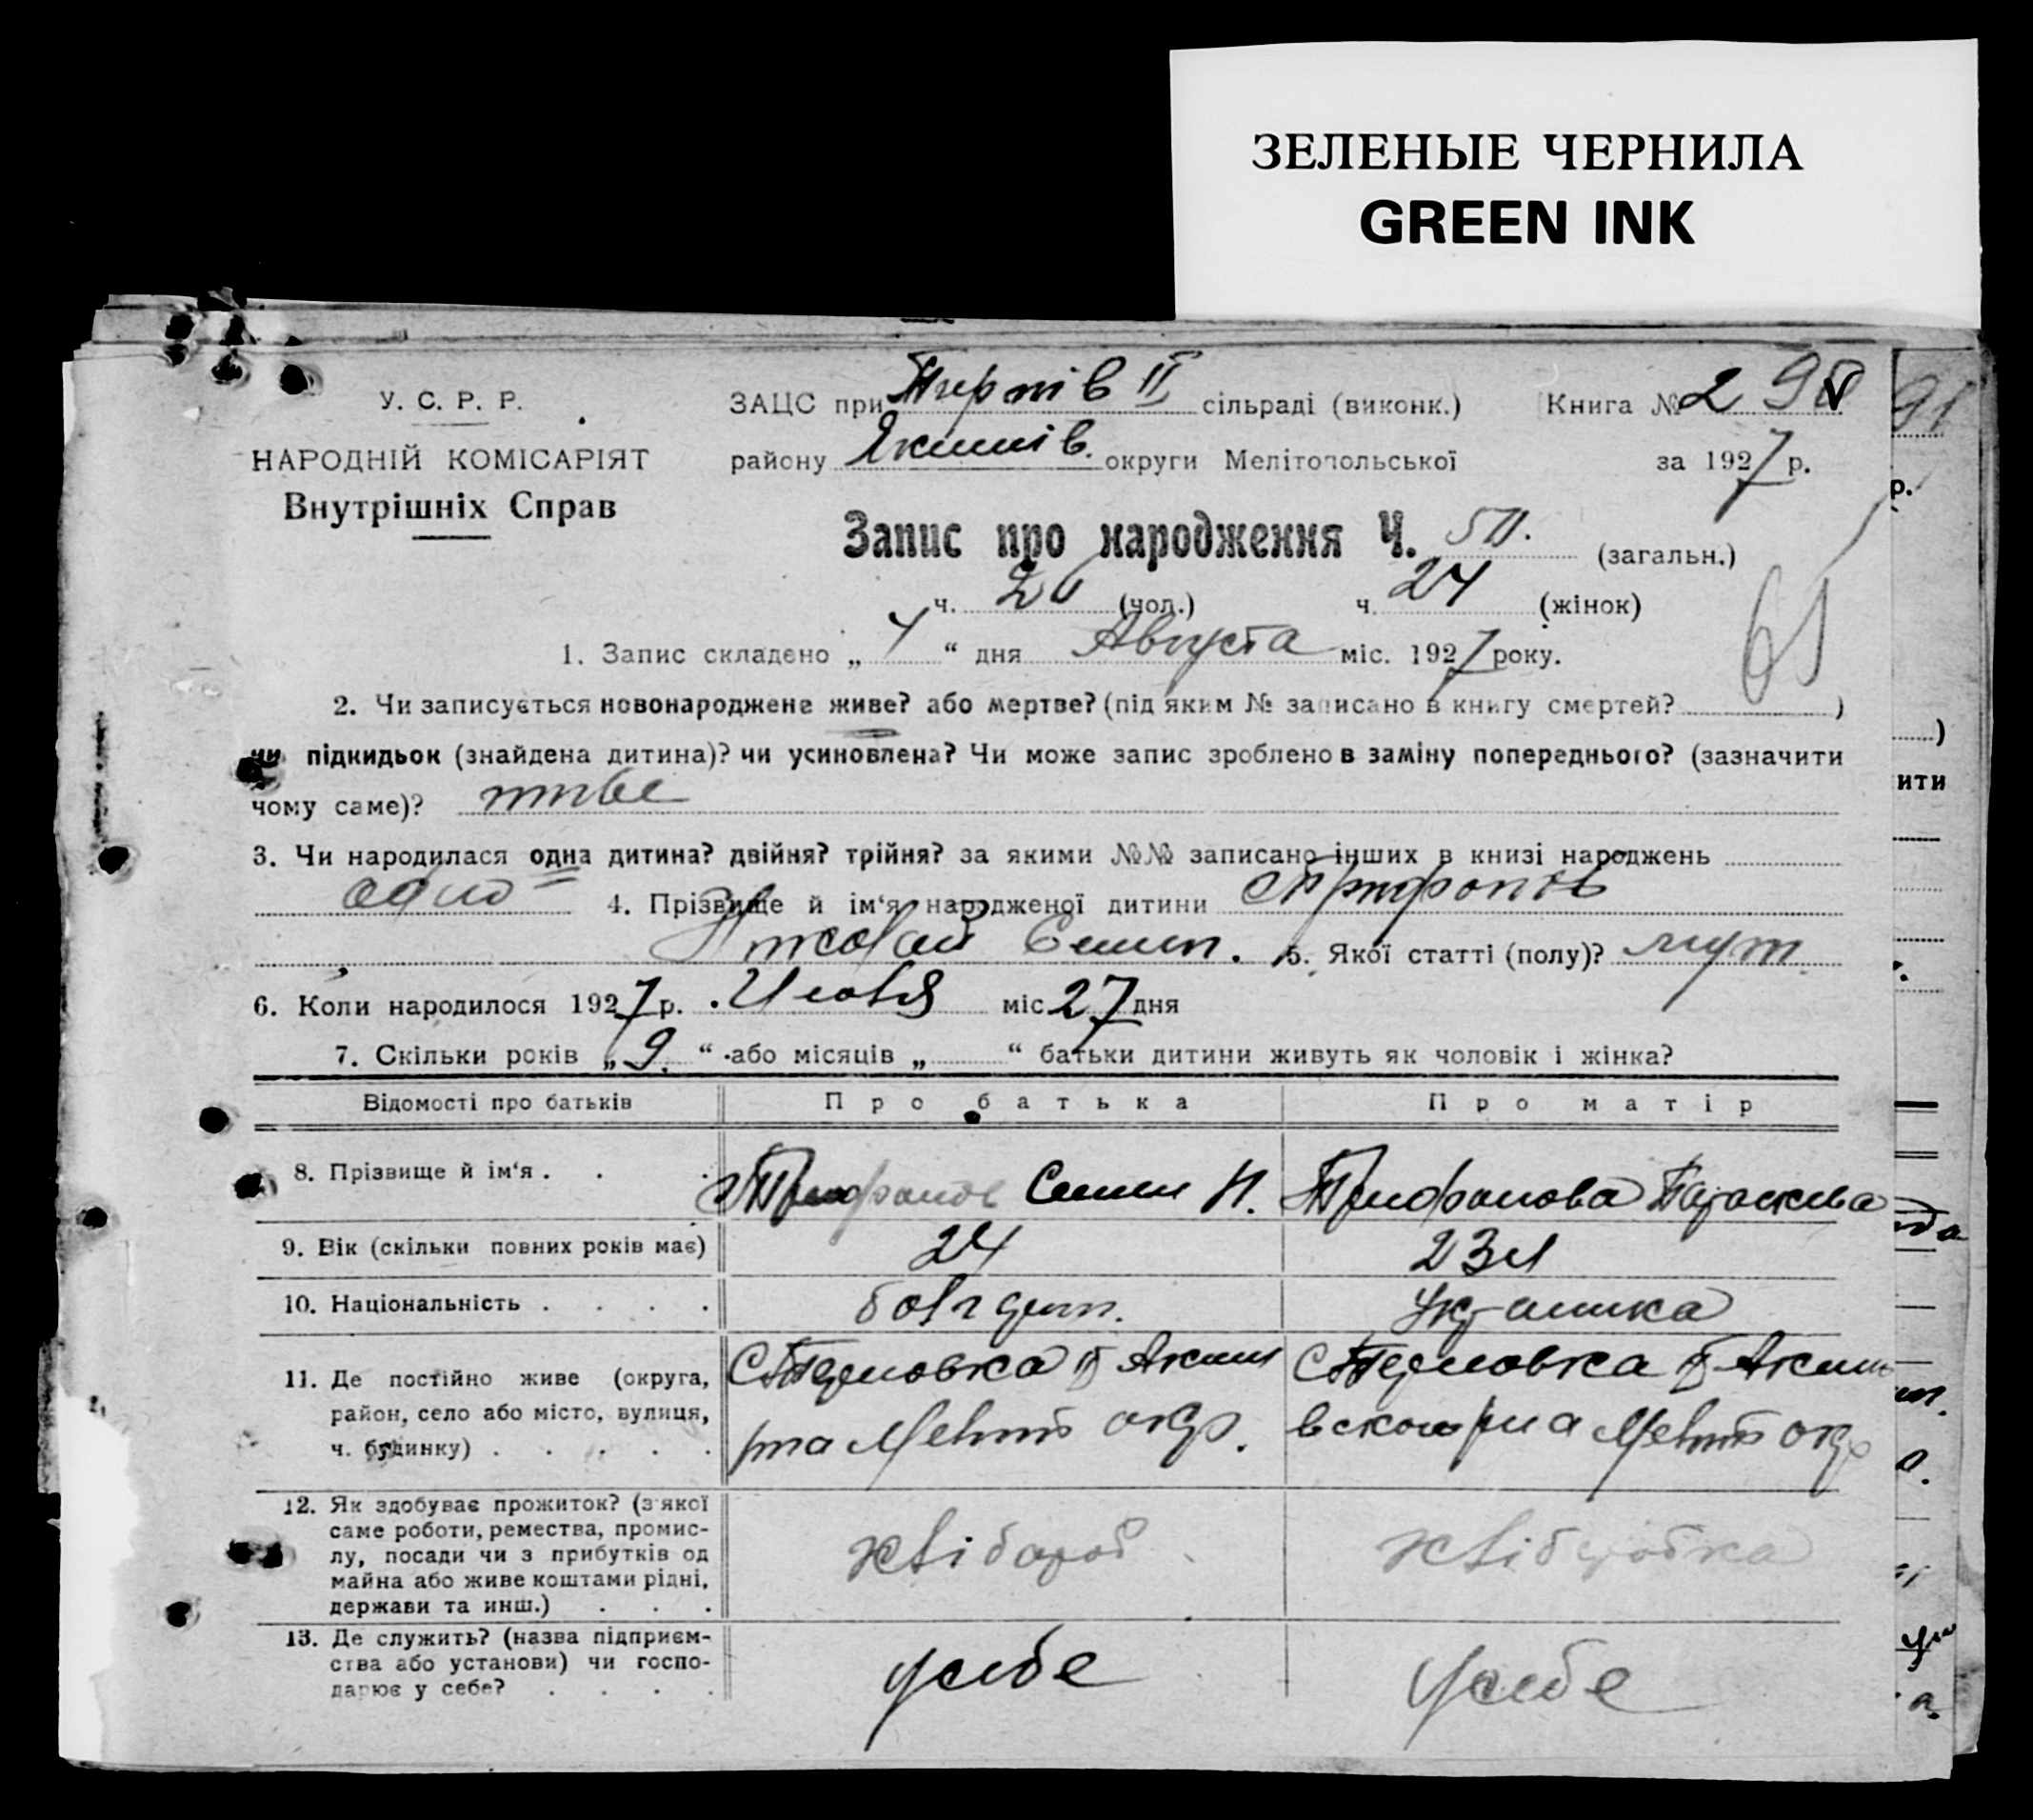 ЗЕЛЕНЫЕ ЧЕРНИЛА
GREEN INK
У. С. Р. Р.
НАРОДНІЙ КОМІСАРІЯТ
Внутрішніх Справ
ЗАЦС при II сільраді (виконк.) Книга № 2
району Якимів. округи Мелітопольської за 1927 р.
Запис про народження Ч. 50. (загальн.)
ч. (чол.) ч. 24 (жінок)
1. Запис складено „ 4 “ дня Августа міс. 1927 року.
65
2. Чи записується новонароджене живе? або мертве? (під яким № записано в книгу смертей? )
чи підкидьок (знайдена дитина)? чи усиновлена? Чи може запис зроблено в заміну попереднього? (зазначити
чому саме)? живе
3. Чи народилася одна дитина? двійня? трійня? за якими №№ записано інших в книзі народжень
одно 4. Прізвище й ім‘я народженої дитини Трифонов
Николай Семен. 5. Якої статті (полу)? муж.
6. Коли народилося 1927 р. Июля міс 27 дня
7. Скільки років „ 9. “ або місяців „ “ батьки дитини живуть як чоловік і жінка?
Відомості про батьків Про батька Про матір
8. Прізвище й ім‘я . . . Трифонов Семен Н. Трифонова Параскева
9. Вік (скільки повних років має) 24 23 л
10. Національність . . . . болгарин. Украинка
11. Де постійно живе (округа, С Терновка II Аким С Терновка II Аким
район, село або місто, вулиця, рна Мелит окр. вского рна Мелит окр
ч. будинку) . . . . .
12. Як здобуває прожиток? (з якої
саме роботи, ремества, промис-
лу, посади чи з прибутків од хлібороб хліборобка
майна або живе коштами рідні,
держави та инш.) . . .
13. Де служить? (назва підприєм-
ства або установи) чи госпо- у себе у себе
дарює у себе? . . . .
91
р.
)
ити